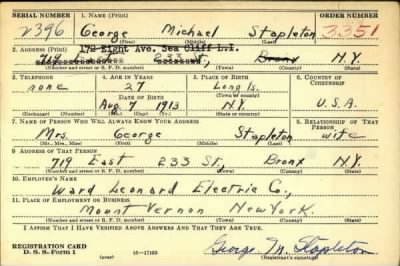 SERIAL NUMBER 1. NAME (Print) ORDER NUMBER
2396 George Michael Stapleton 3351
(First) (Middle) (Last)
2. ADDRESS (Print) 172 Eight Ave. Sea Cliff L.I.
719 East 233 St., Bronx N.Y.
(Number and street or R. F. D. number) (Town) (County) (State)
3. TELEPHONE 4. AGE IN YEARS 5. PLACE OF BIRTH 6. COUNTRY OF CITIZENSHIP
none 27 Long Is.
DATE OF BIRTH (Town or county)
Aug. 7 1913 N.Y. U.S.A.
(Exchange) (Number) (Mo.) (Day) (Yr.) (State or country)
7. NAME OF PERSON WHO WILL ALWAYS KNOW YOUR ADDRESS 8. RELATIONSHIP OF THAT PERSON
Mrs. George Stapleton wife
(Mr., Mrs., Miss) (First) (Middle) (Last)
9. ADDRESS OF THAT PERSON
719 East 233 St, Bronx N.Y.
(Number and street or R. F. D. number) (Town) (County) (State)
10. EMPLOYER'S NAME
Ward Leonard Electric Co.,
11. PLACE OF EMPLOYMENT OR BUSINESS
Mount Vernon New York.
(Number and street or R. F. D. number) (Town) (County) (State)
I AFFIRM THAT I HAVE VERIFIED ABOVE ANSWERS AND THAT THEY ARE TRUE.
REGISTRATION CARD
D. S. S. Form 1 16-17105 George M. Stapleton
(Registrant's signature)